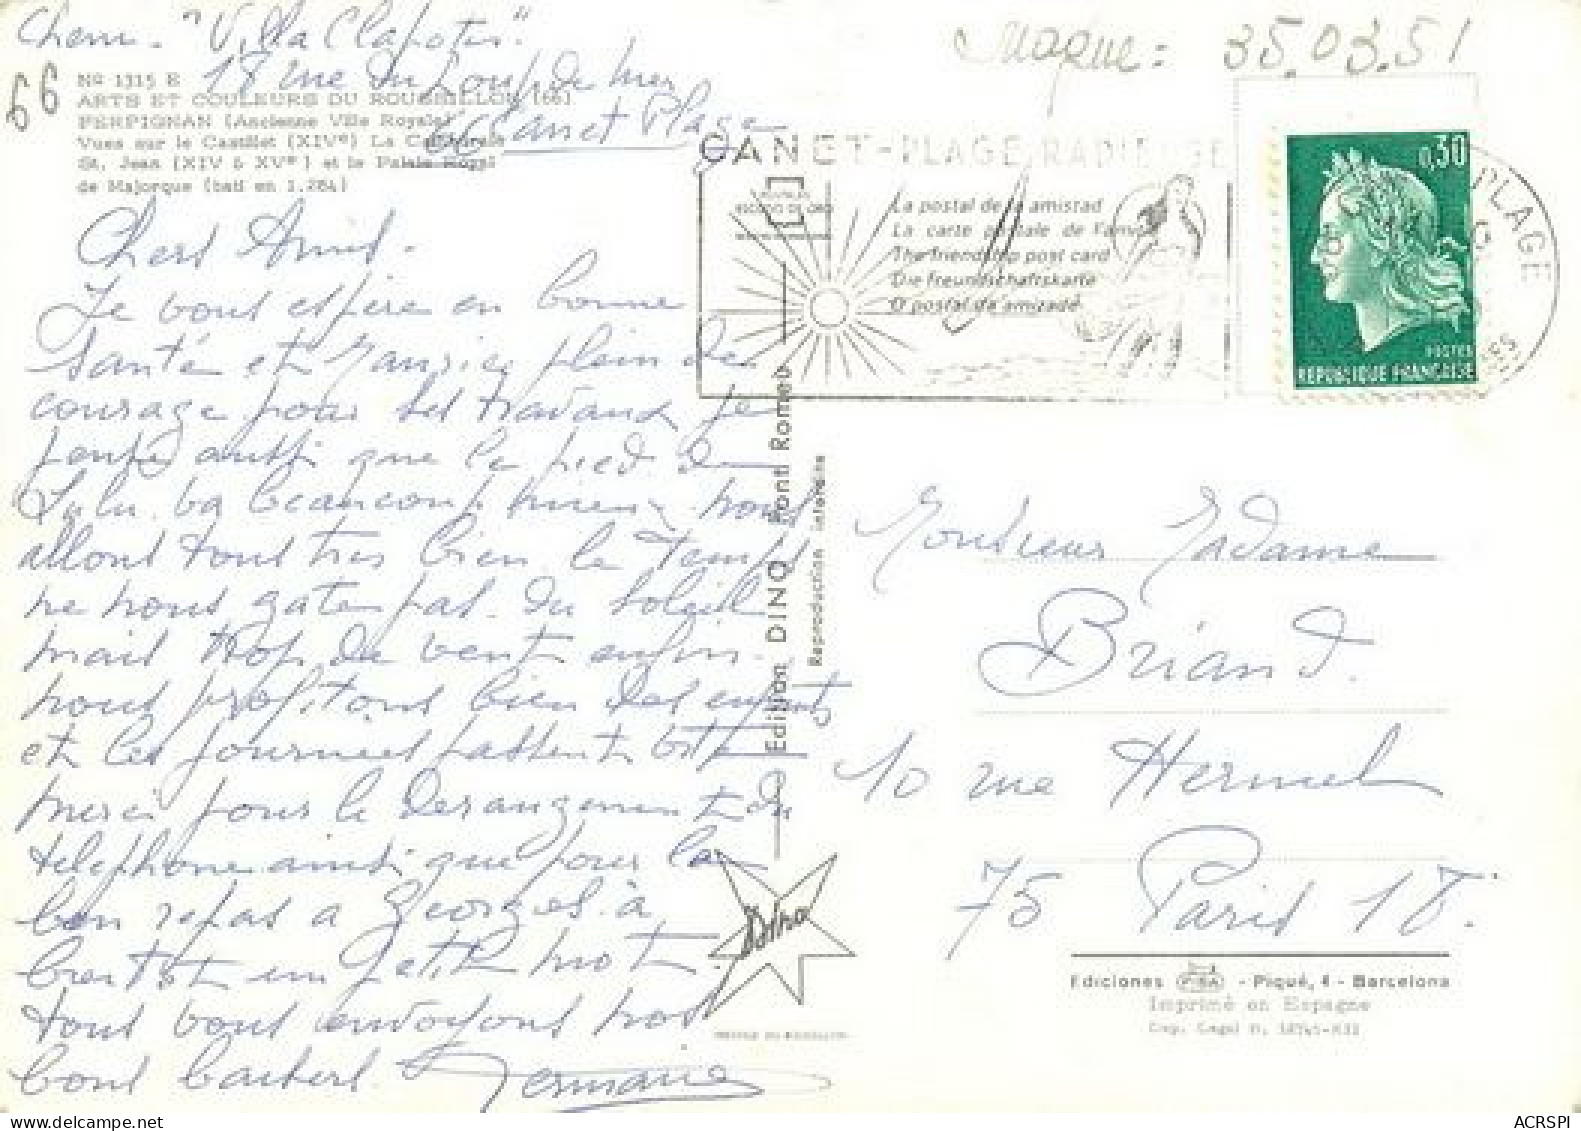 Chem. "Villa Clapotis"
18 rue du Loup de Mer
66 Canet Plage
66
Nº 1315 E
ARTS ET COULEURS DU ROUSSILLON (66)
PERPIGNAN (Ancienne Ville Royale)
Vues sur le Castillet (XIVº) La Cathédrale
St. Jean (XIV & XVº) et le Palais Royal
de Majorque (bati en 1.284)
Chers Amis.
Je vous espère en bonne
santé et Maurice plein de
courage pour ses travaux je
pense aussi que le pied de
Lulu va beaucoup mieux nous
allons tous très bien le temps
ne nous gate pas du soleil
mais trop de vent enfin
nous profitons bien des enfants
et les journées passent vite
merci pour le derangement du
telephone ainsi que pour le
bon repas a Georges à
bientot un petit mot
tous vous envoyons nos
bons baisers Germaine
35.03.51
CANET-PLAGE RADIEUSE
La postal de la amistad
La carte postale de l'amitié
The friendship post card
Die freundschaftskarte
O postal da amizade
0,30
POSTES
REPUBLIQUE FRANÇAISE
PLAGE
Edition DINO Font Romeu
Reproduction interdite
Monsieur Madame
Briand.
10 rue Hermel
75 Paris 18.
Dino
Ediciones - Piqué, 4 - Barcelona
Imprimé en Espagne
ACRSPI